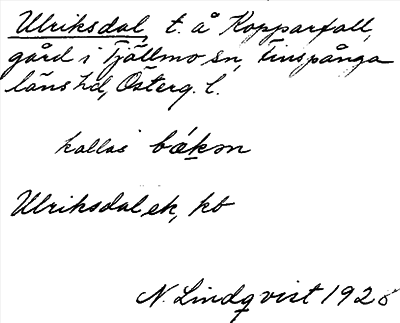 Ulriksdal, t. å Kopparfall,
gård i Tjällmo sn, Finspånga
läns hd, Österg. l.
kallas bækən
Ulriksdal ek, kb
N. Lindqvist 1928